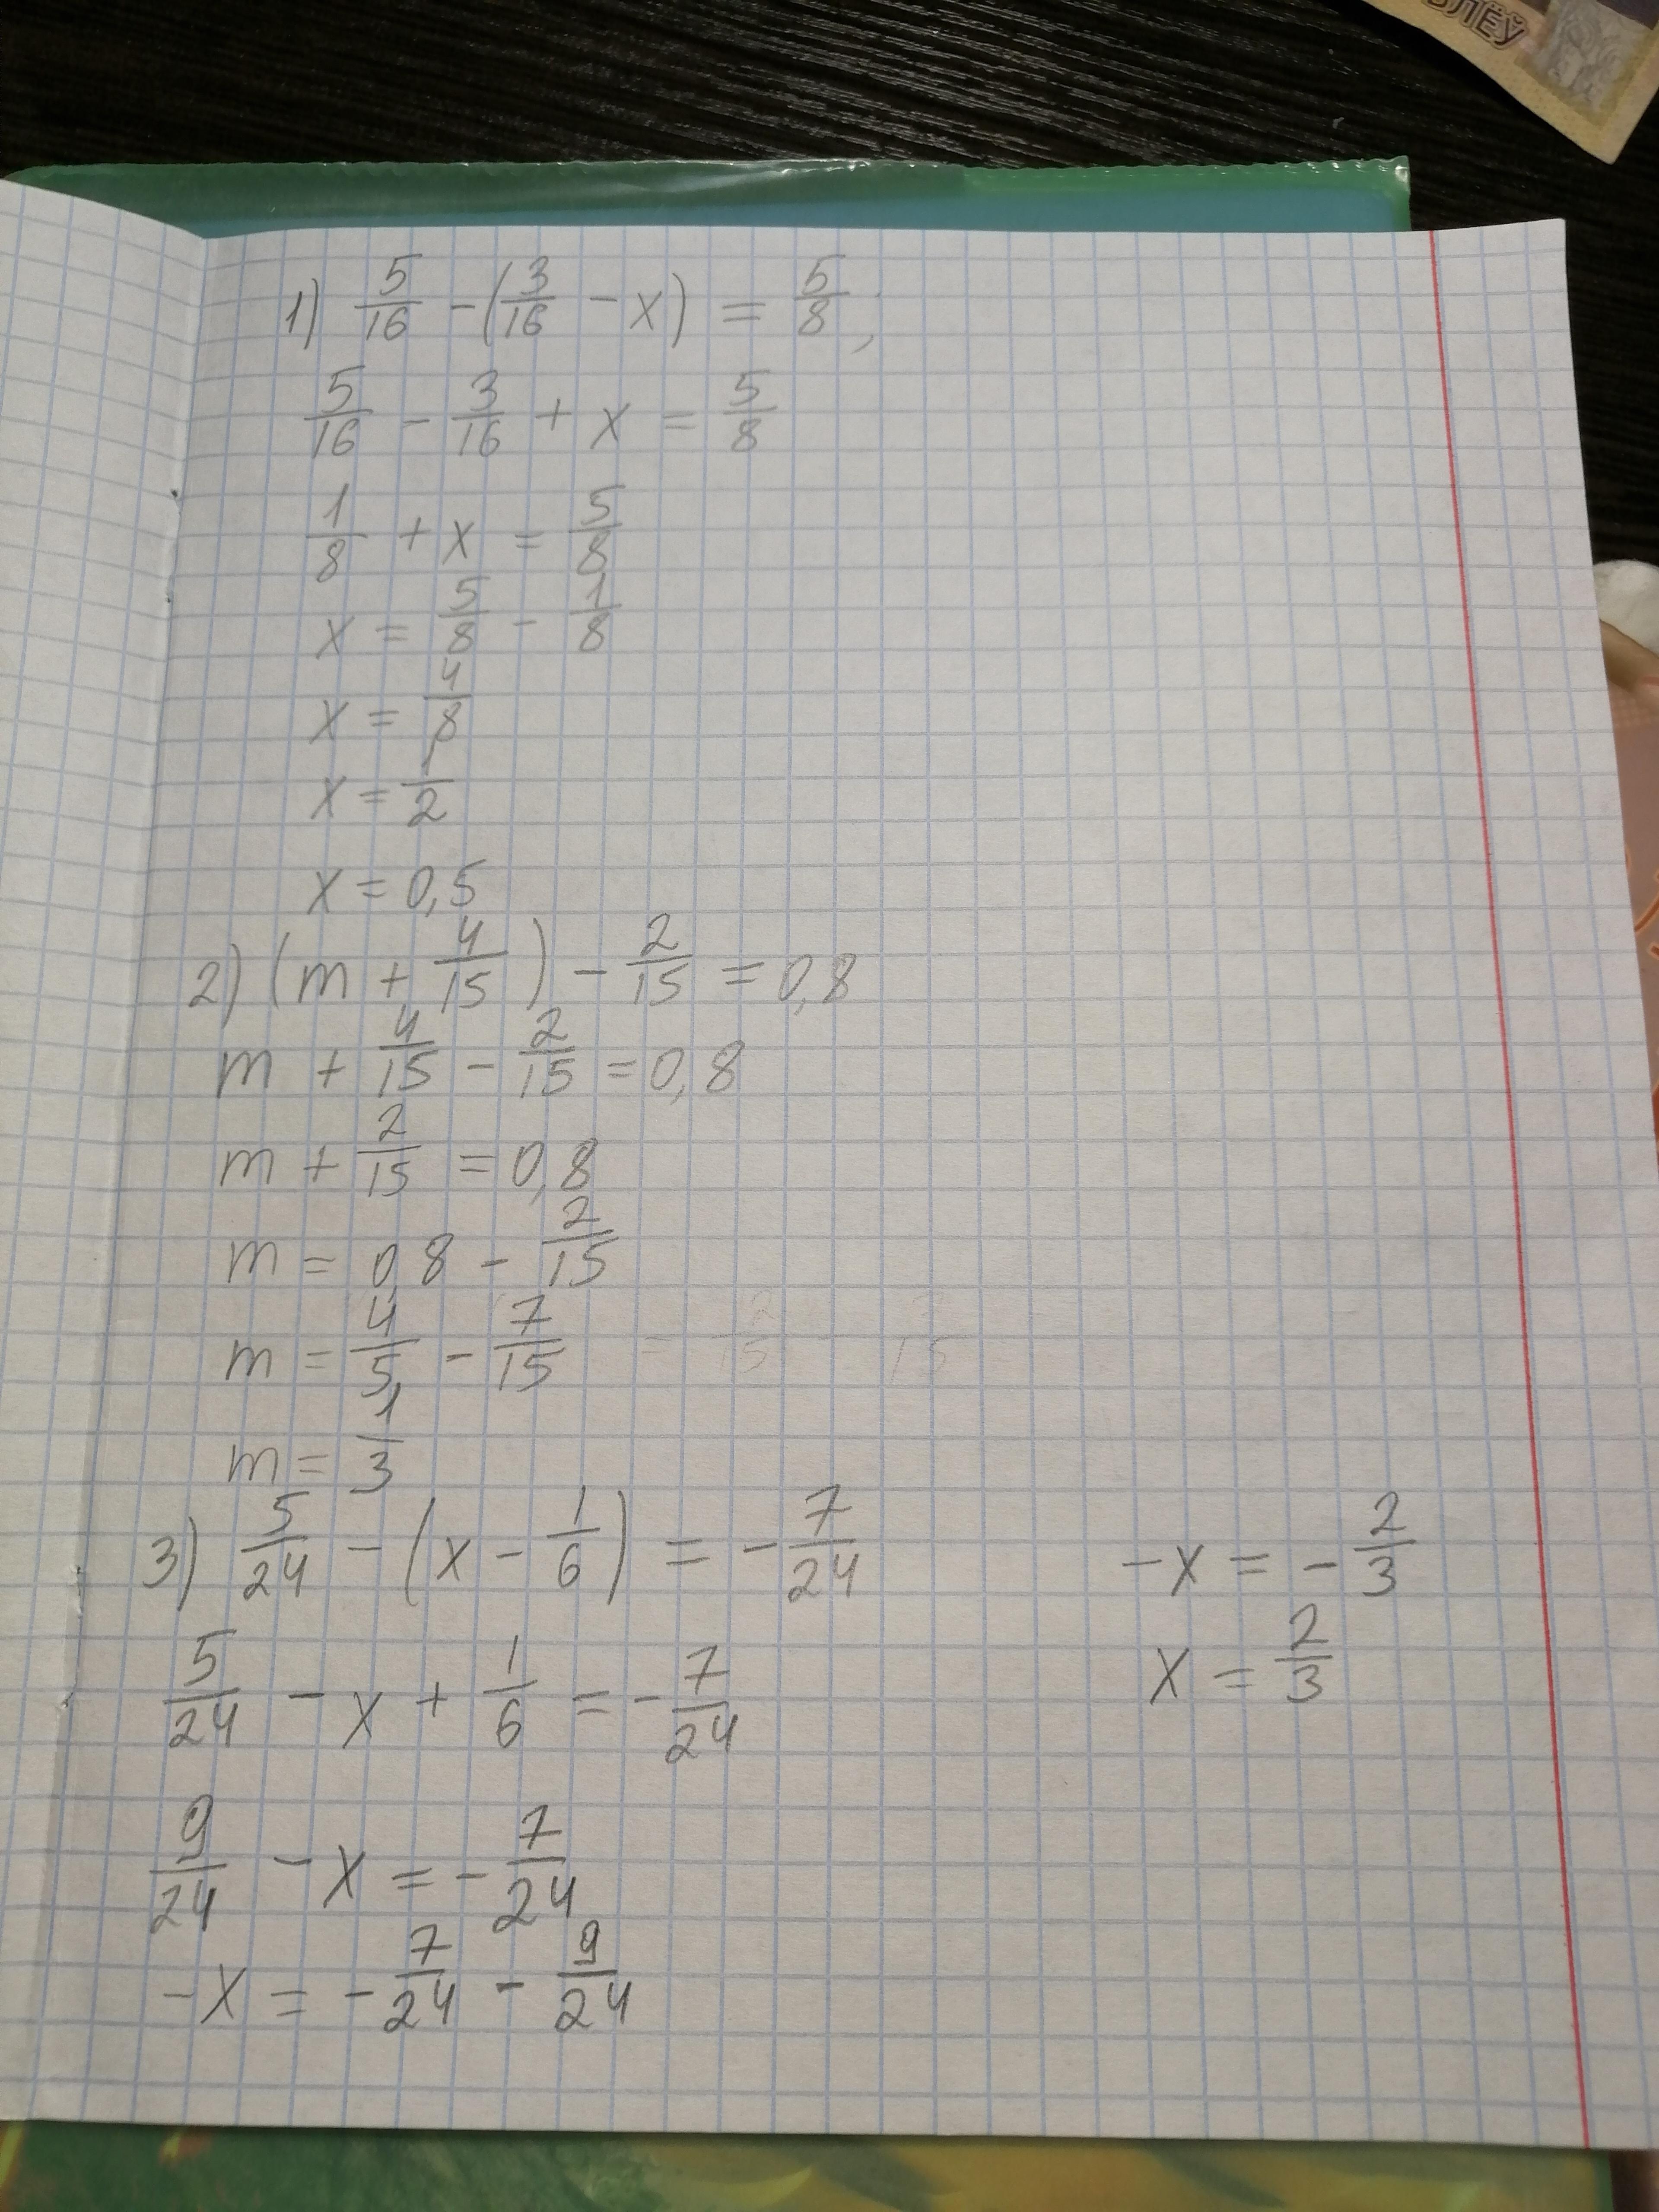 ВЛЁЎ
1) 5/16 - (3/16 - x) = 5/8;
5/16 - 3/16 + x = 5/8
1/8 + x = 5/8
x = 5/8 - 1/8
x = 4/8
x = 1/2
x = 0,5
2) (m + 4/15) - 2/15 = 0,8
m + 4/15 - 2/15 = 0,8
m + 2/15 = 0,8
m = 0,8 - 2/15
m = 4/5 - 7/15
m = 1/3
3) 5/24 - (x - 1/6) = - 7/24
5/24 - x + 1/6 = - 7/24
9/24 - x = - 7/24
-x = - 7/24 - 9/24
-x = - 2/3
x = 2/3